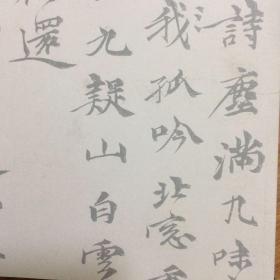 詩塵滿九
我孤吟北窓
九疑山白雲
還